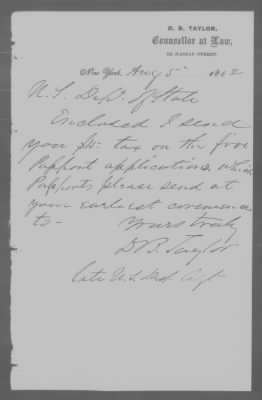 D. B. TAYLOR,
Counsellor at Law,
NASSAU STREET.
New York, Aug 5th 1862
U. S. Dept. of State
Enclosed I send
you tax on the five
Passport applications, which
Passports please send at
your earliest convenience
to-
Yours truly
D. B. Taylor
late U.S. Agt